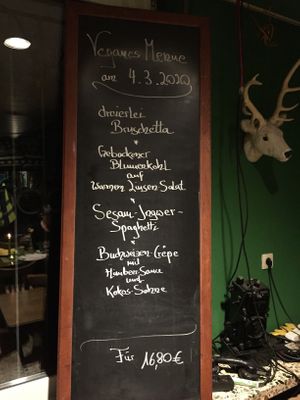 Veganes Menue
am 4.3.2020
dreierlei
Bruschetta
*
Gebackener
Blumenkohl
auf
Warmem Linsen Salat
*
Sesam-Ingwer-
Spaghetti
*
Buchweizen-Crêpe
mit
Himbeer-Sauce
und
Kokos-Sahne
Für 16,80€